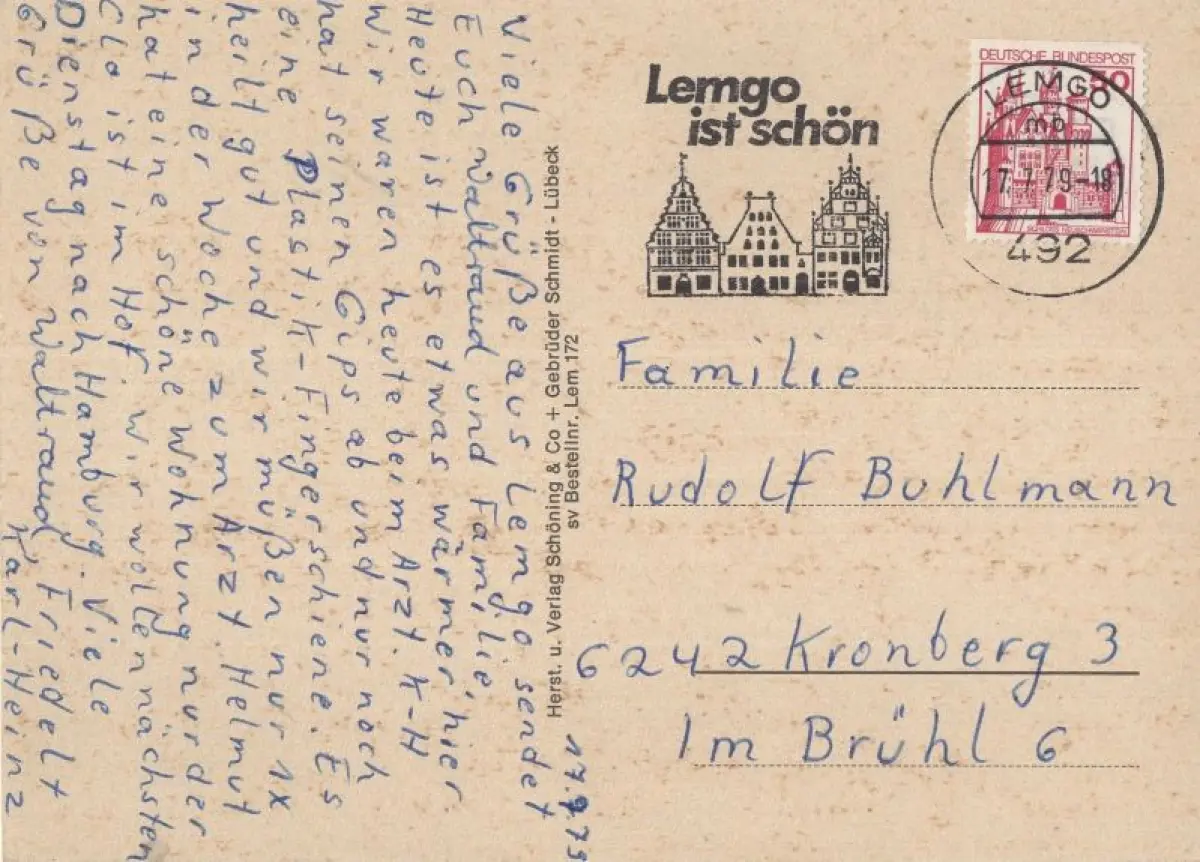 17.7.79
Viele Grüße aus Lemgo sendet
Euch Waltraud und Familie,
Heute ist es etwas wärmer hier
Wir waren heute beim Arzt. K-H
hat seinen Gips ab und nur noch
eine Plastik-Fingerschiene. Es
heilt gut und wir müßen nur 1x
in der Woche zum Arzt Helmut
hat eine schöne Wohnung nur der
Clo ist im Hof. Wir wollen nächsten
Dienstag nach Hamburg. Viele
Grüße von Waltraud, Friedelt
Karl-Heinz
Herst. u. Verlag Schöning & Co + Gebrüder Schmidt - Lübeck
sv Bestellnr. Lem 172
Lemgo
ist schön
DEUTSCHE BUNDESPOST
50
LEMGO
mb
17.7.79-18
492
Familie
Rudolf Buhlmann
6242 Kronberg 3
Im Brühl 6